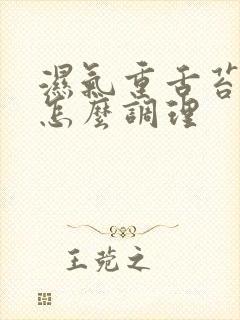 濕氣重舌苔
怎麼調理
王菀之